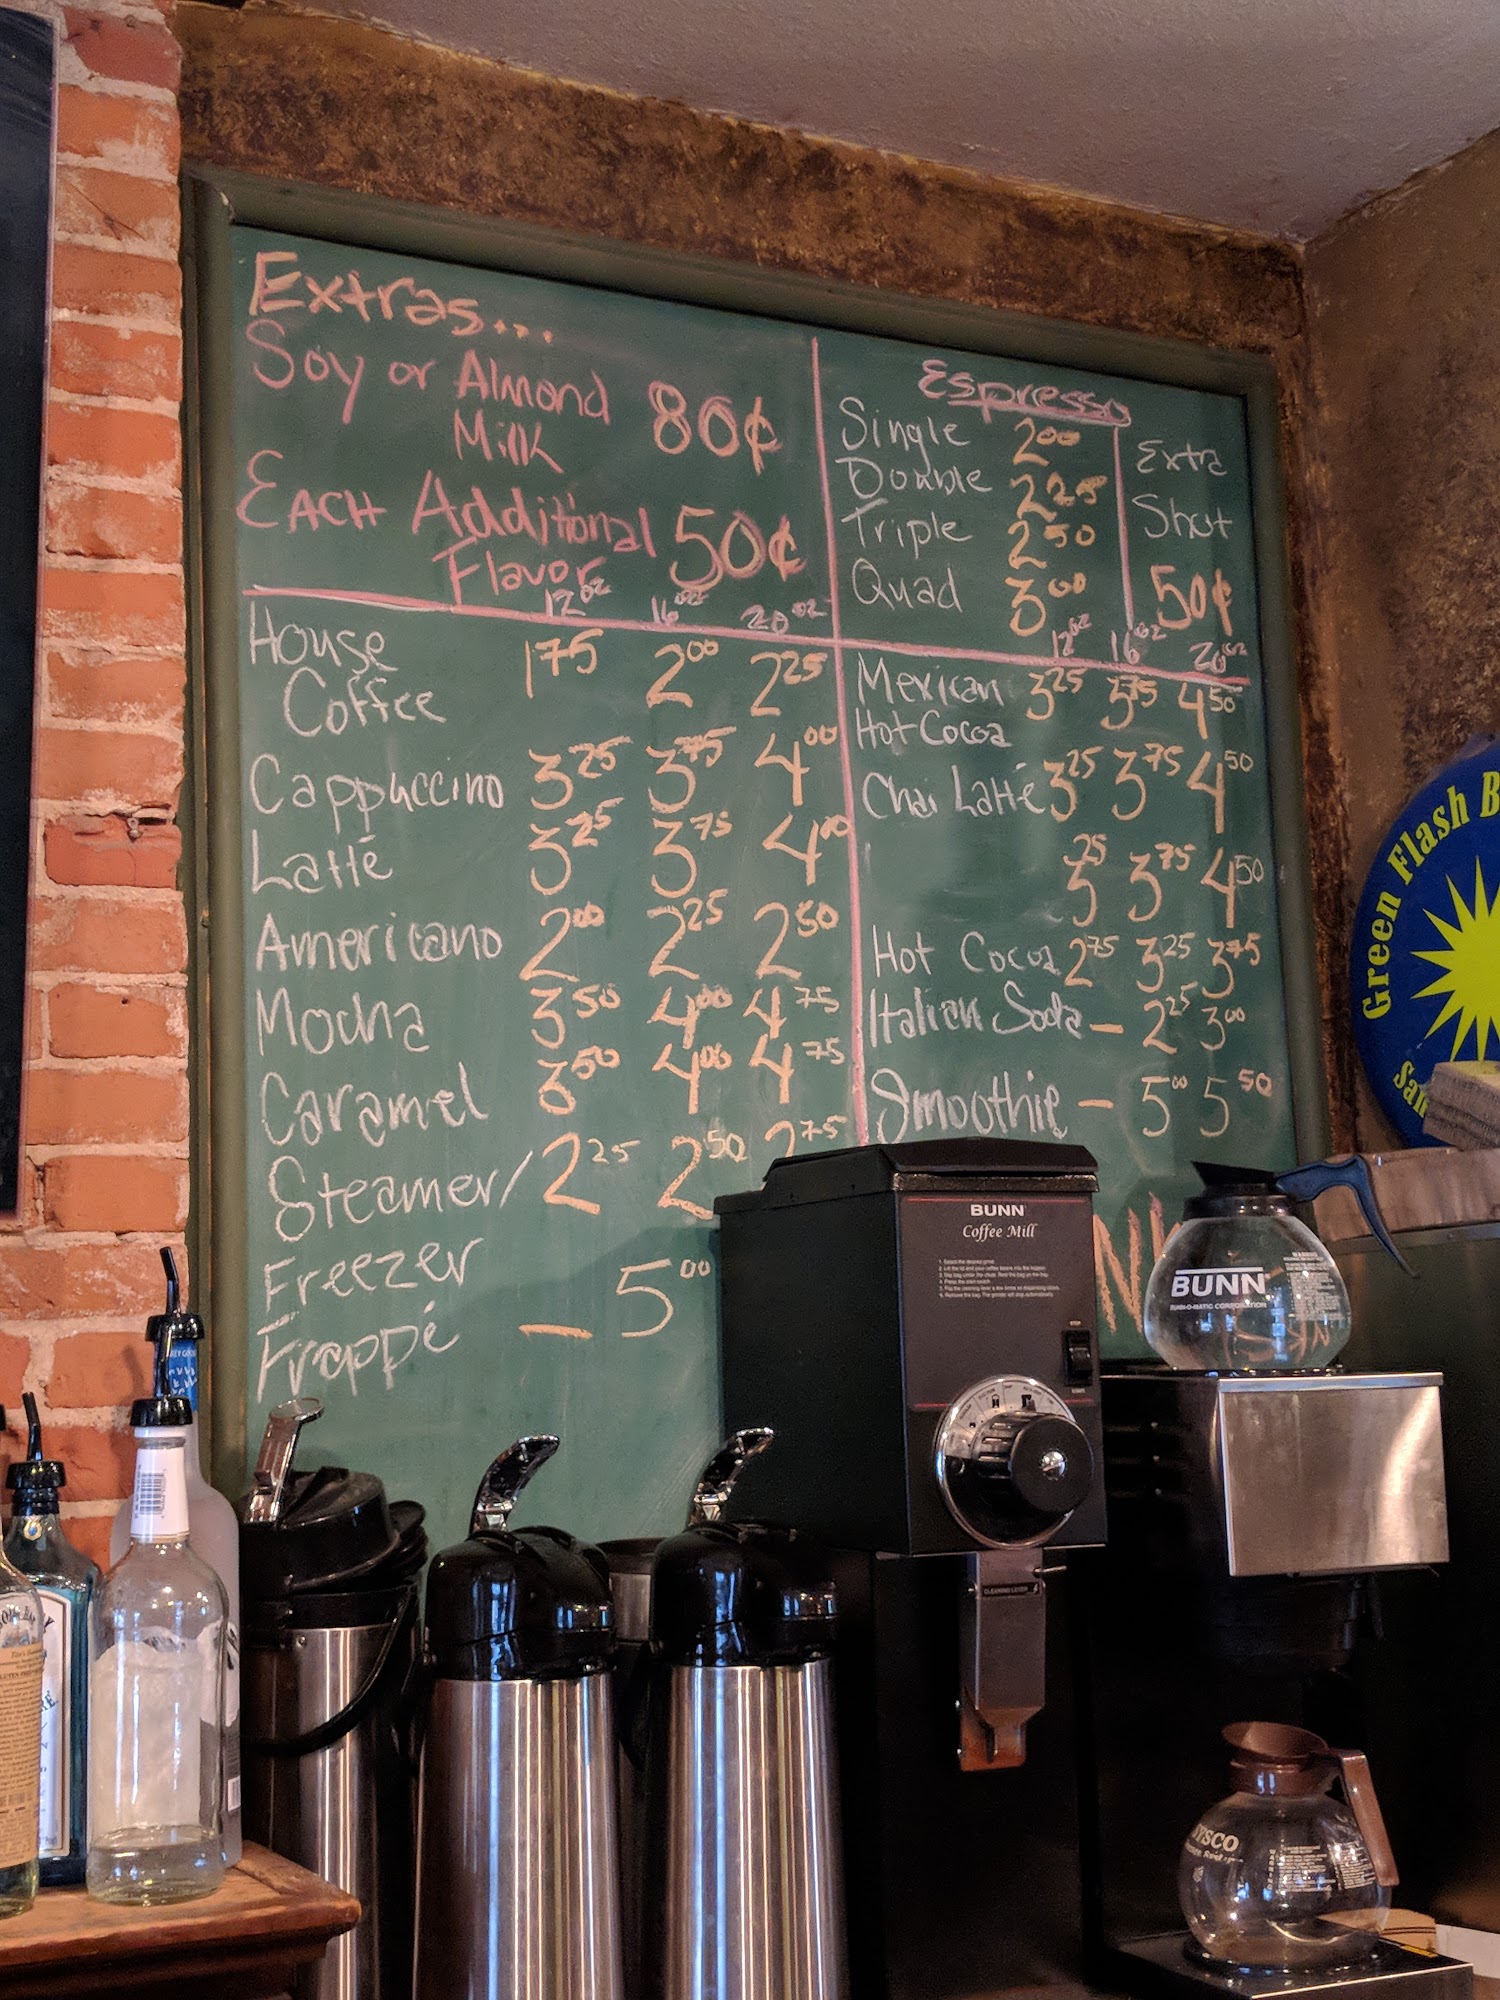 Extras...
Soy or Almond
Milk 80¢
EACH Additional
Flavor 50¢
12oz 16oz 20oz
House
Coffee 1 75 2 00 2 25
Cappuccino 3 25 3 75 4 00
Latté 3 25 3 75 4 00
Americano 2 00 2 25 2 50
Mocha 3 50 4 00 4 75
Caramel 3 50 4 00 4 75
Steamer/ 2 25 2 50 2 75
Freezer
Frappé — 5 00
Espresso
Single 2 00
Double 2 25
Triple 2 50
Quad 3 00
Extra
Shot
50¢
12oz 16oz 20oz
Mexican 3 25 3 75 4 50
Hot Cocoa
Chai Latté 3 25 3 75 4 50
3 25 3 75 4 50
Hot Cocoa 2 75 3 25 3 75
Italian Soda — 2 25 3 00
Smoothie — 5 00 5 50
Green Flash B
San
BUNN
Coffee Mill
BUNN
BUNN-O-MATIC CORPORATION
CLEANING LEVER